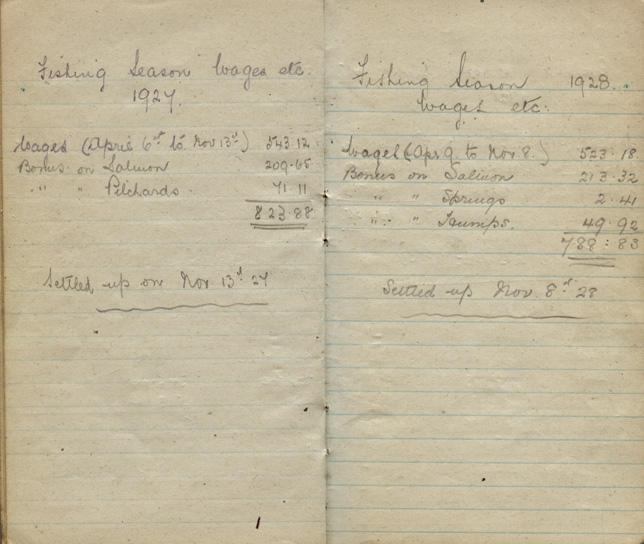 Fishing Season Wages etc.
1927.
Wages (April 6th to Nov 13th) 543.12
Bonus on Salmon 209.65
" " Pilchards. 71 11
823.88
Settled up on Nov 13th 27
Fishing Season 1928.
Wages etc.
Wages (Apr 9. to Nov 8.) 523.18
Bonus on Salmon 213.32
" " Springs 2.41
" " Humps. 49.92
788:83
Settled up Nov. 8th 28